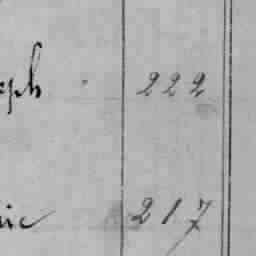 eph 222
nic 217